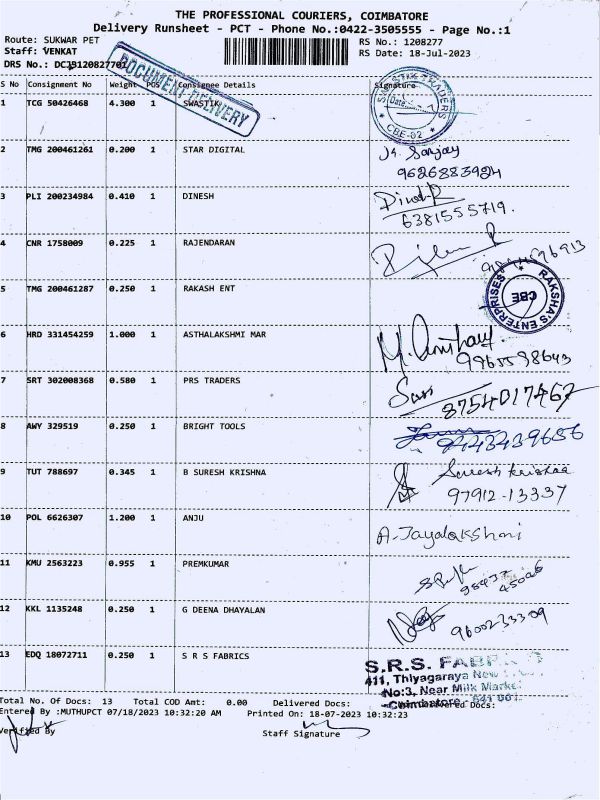 THE PROFESSIONAL COURIERS, COIMBATORE
Delivery Runsheet - PCT - Phone No.:0422-3505555 - Page No.:1
Route: SUKWAR PET RS No.: 1208277
Staff: VENKAT RS Date: 18-Jul-2023
DRS No.:
DOCUMENT DELIVERY
S No Consignment No Weight PCS Consignee Details Signature
1 TCG 50426468 4.300 1 SWASTIK
SWASTIK TRADERS Date CBE-02
2 TMG 200461261 0.200 1 STAR DIGITAL Sanjay
9626883924
3 PLI 200234984 0.410 1 DINESH
6381555719.
4 CNR 1758009 0.225 1 RAJENDARAN
5 TMG 200461287 0.250 1 RAKASH ENT RAKSHA'S ENTERPRISES CBE
6 HRD 331454259 1.000 1 ASTHALAKSHMI MAR
7 SRT 302008368 0.580 1 PRS TRADERS
8754017467
8 AWY 329519 0.250 1 BRIGHT TOOLS
9 TUT 788697 0.345 1 B SURESH KRISHNA Suresh krishna
97912-13337
10 POL 6626307 1.200 1 ANJU A. Jayalakshmi
11 KMU 2563223 0.955 1 PREMKUMAR
12 KKL 1135248 0.250 1 G DEENA DHAYALAN 9600233309
13 EDQ 18072711 0.250 1 S R S FABRICS S.R.S.
411, Thiyagaraya New
No:3, Near Milk Marke
Coimbatore
Total No. Of Docs: 13 Total COD Amt: 0.00 Delivered Docs: Docs:
Entered By :MUTHUPCT 07/18/2023 10:32:20 AM Printed On: 18-07-2023 10:32:23
Verified By Staff Signature